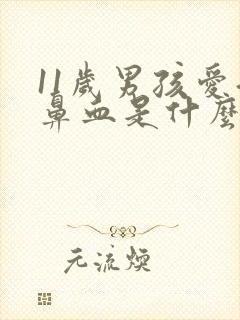 11歲男孩愛
鼻血是什麼
元流煥